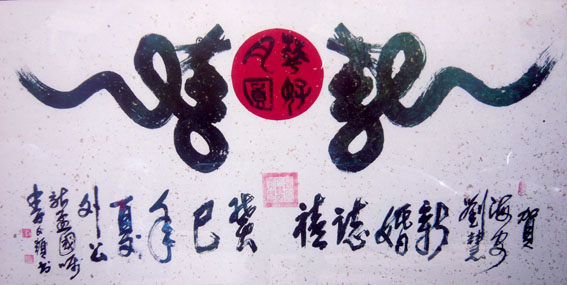 花好
月圓
賀
海安
劉慧
新婚誌禧
癸巳年夏
外公